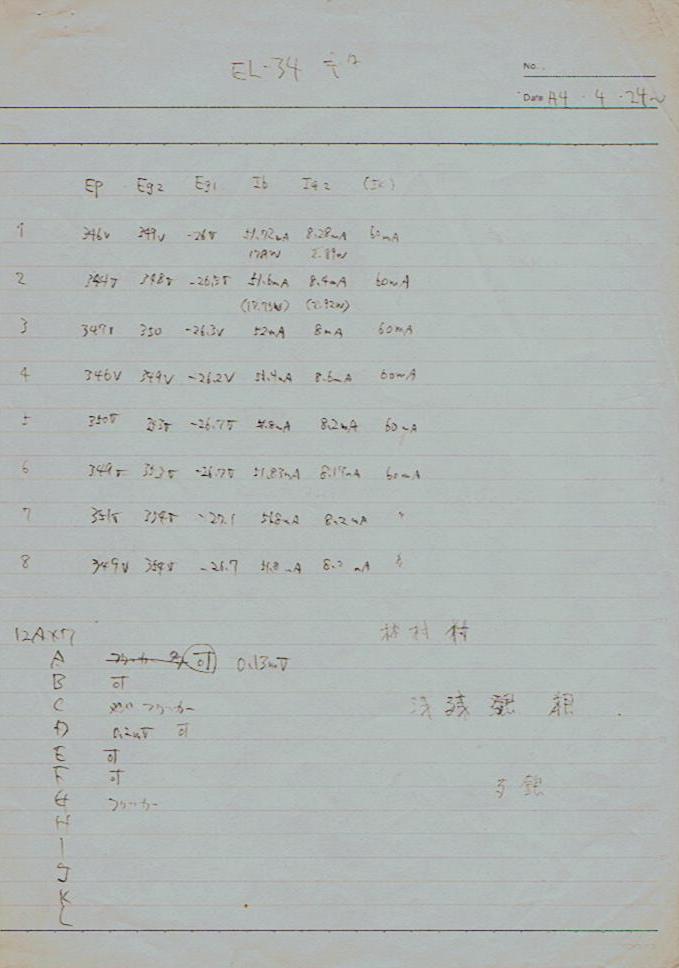 EL-34
No.
Date A4 . 4 . 24
Ep Eg2 Eg1 Ib Ig2 (Ik)
1 346V 349V -26V 51.72mA 8.28mA 60mA
2 344V 348V -26.5V 51.6mA 8.4mA 60mA
3 347V 350 -26.3V 52mA 8mA 60mA
4 346V 349V -26.2V 51.4mA 8.6mA 60mA
5 350V 353V -26.7V 51.8mA 8.2mA 60mA
6 349V 353V -26.7V 51.83mA 8.17mA 60mA
7 351V 354V -27.1 8.2mA 〃
8 349V 354V -26.7 51.8mA 8.2mA 〃
12AX7
A フリッカー 可 0.13mV
B 可
C フリッカー
D 0.2mV 可
E 可
F 可
G フリッカー
H
I
J
K
L
村 村
浅